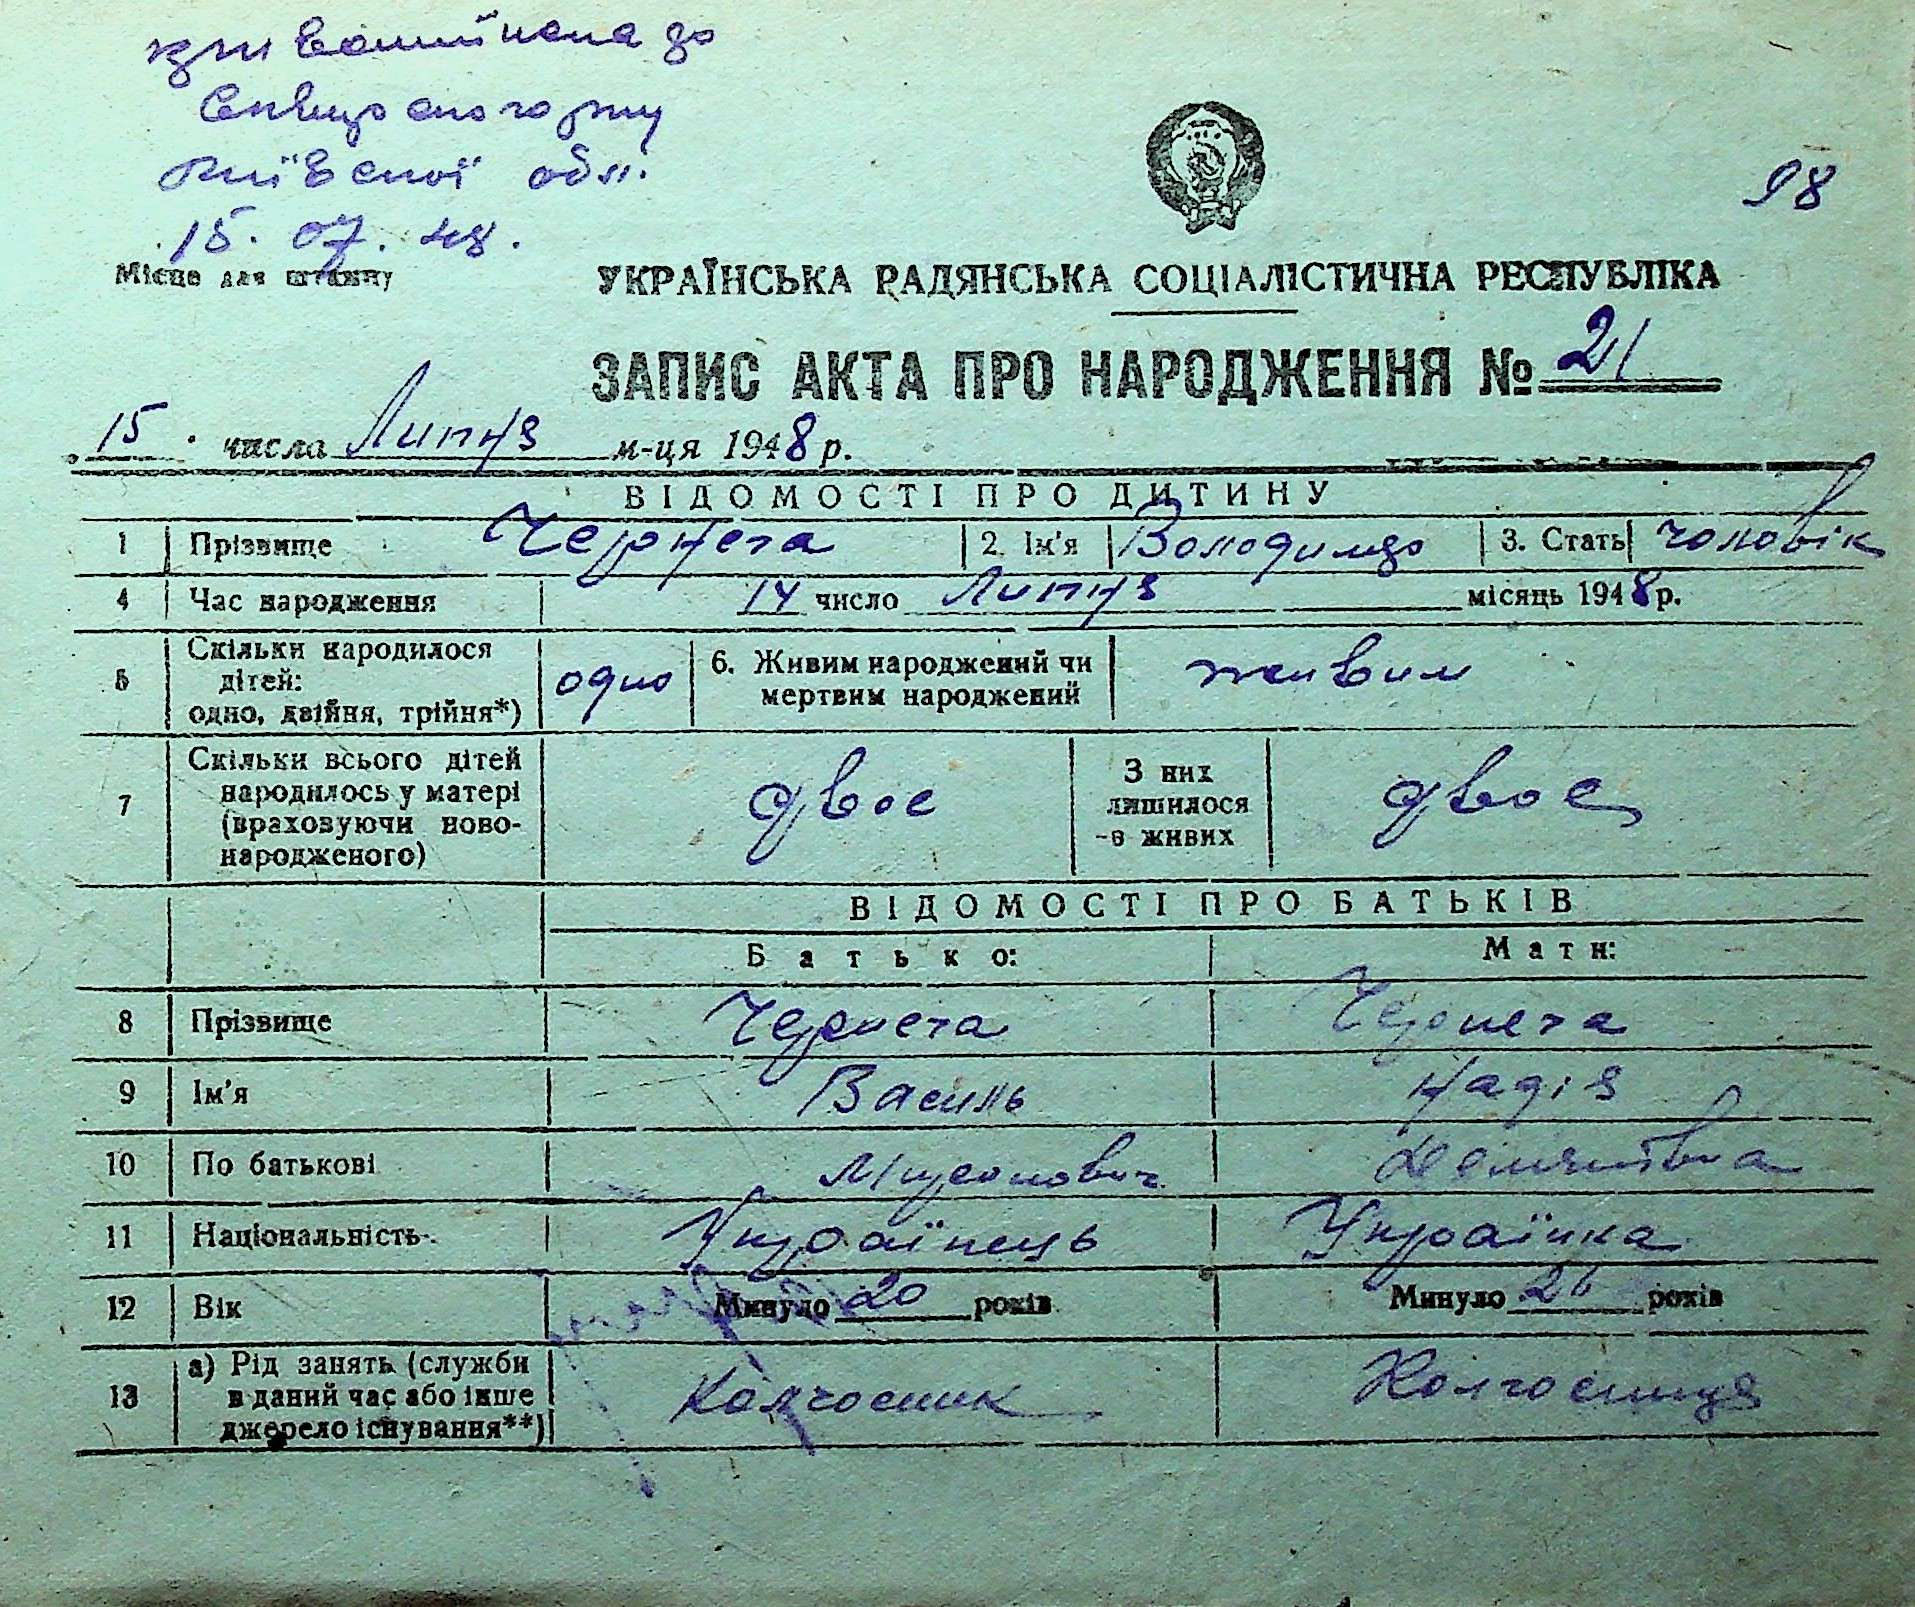 до
Сквирского р-ну
Київської обл.
15. 07. 48.
98
Місце для штампу
УКРАЇНСЬКА РАДЯНСЬКА СОЦІАЛІСТИЧНА РЕСПУБЛІКА
ЗАПИС АКТА ПРО НАРОДЖЕННЯ № 21
15 числа Липня м-ця 1948 р.
ВІДОМОСТІ ПРО ДИТИНУ
1 Прізвище Чернега 2. Ім'я Володимир 3. Стать чоловік
4 Час народження 14 число Липня місяць 1948 р.
5 Скільки народилося дітей: одно, двійня, трійня*) одно 6. Живим народжений чи мертвим народжений живим
7 Скільки всього дітей народилось у матері (враховуючи ново-народженого) двоє З них лишилося в живих двоє
ВІДОМОСТІ ПРО БАТЬКІВ
Батько: Мати:
8 Прізвище Чернега Чернега
9 Ім'я Василь Надія
10 По батькові
11 Національність Українець Українка
12 Вік Минуло 20 років Минуло 26 років
13 а) Рід занять (служби в даний час або інше джерело існування**) Колгосник Колгосниця